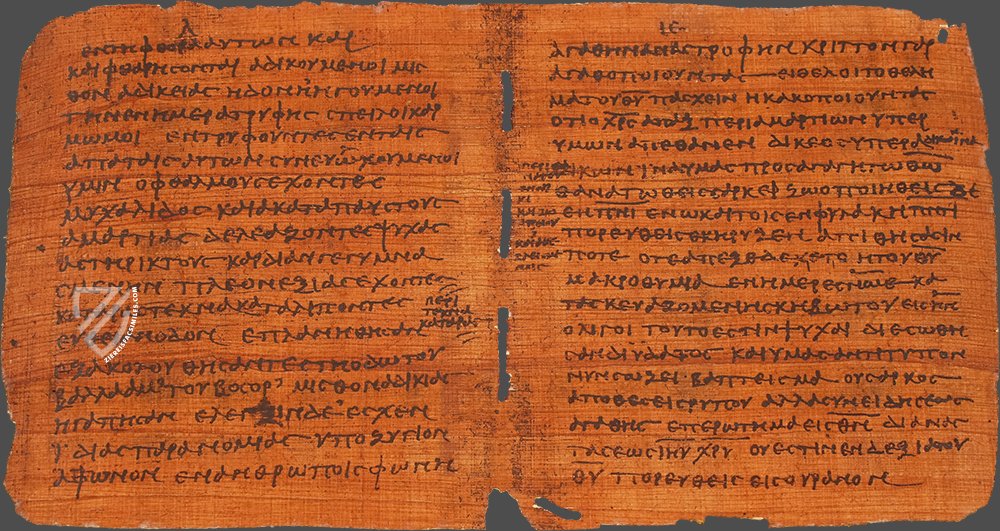 λ
εν τη φθορα αυτων και
και φθαρησονται αδικουμενοι μις
θον αδικειας ηδονην ηγουμενοι
την εν ημερα τρυφης σπειλοι και
μωμοι εντρυφουντες εν ταις
απαταις αυτων συνευωχουμενοι
υμιν οφθαλμους εχοντες
μυχαλιδος και ακαταπαυστους
αμαρτιας δελεαζοντες ψυχας
αστηρικτους καρδιαν γεγυμνα
πλεονεξιας εχοντες
τεκνα καταλιποντες
επλανηθησαν
εξακολουθησαντες τη οδω του
βαλααμ του βοσορ μισθον αδικιας
ηγαπησεν ελεγξιν δε εσχεν
ιδιας παρανομιας υποζυγιον
αφωνον εν ανθρωποις φωνη
περι
τεκνα
καταρας
ιε
αγαθην αναστροφην κριττον γαρ
αγαθοποιουντας ει θελοι το θελη
μα του θυ πασχειν η κακοποιουντας
οτι και χρς απαξ περι αμαρτιων υπερ
υμων απεθανεν δικεος υπερ αδικων ινα
υμας προσαγαγη τω θω
θανατωθεις σαρκει ζωοποιηθεις δε
εν πνι εν ω και τοις εν φυλακη πνι
πορευθεις εκηρυξεν απιθησασιν
ποτε οτε απεξεδεχετο η του θυ
μακροθυμια εν ημερες νωε κα
τασκευαζομενης κιβωτου εις ην
ολιγοι τουτο εστιν η ψυχαι διεσωθη
σαν δι υδατος και υμας αντιτυπον
νυν σωζει βαπτεισμα ου σαρκος
αποθεσεις ρυπου αλλα συνειδησεως
αγαθης επερωτημα εις θν δι ανασ
τασεως ιηυ χρυ ος εστιν εν δεξια του
θυ πορευθεις εις ουρανον
ZIEREISFACSIMILES.COM